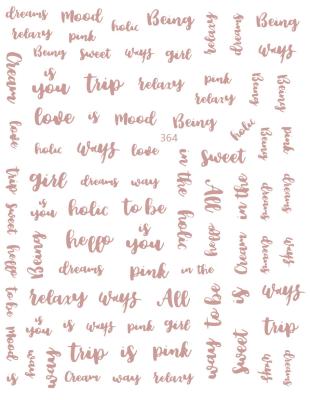 dreams Mood holic Being relaxy dreams Being
relaxy pink
Being Sweet ways girl ways
Cream is you trip relaxy pink Being Being
relaxy
love is Mood Being holic
364
love holic ways love in the holic Sweet Being pink
trip girl dreams way All Cream in the dreams dreams
Sweet is you holic to be
heffo Being heffo is you heffo dreams ways
dreams pink in the
to be relaxy ways All way to be is ways
is you is ways pink girl trip
Mood way way trip is pink Sweet ways dreams
is Cream way relaxy